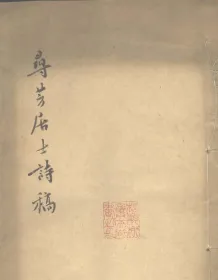 尋芳居士詩稿